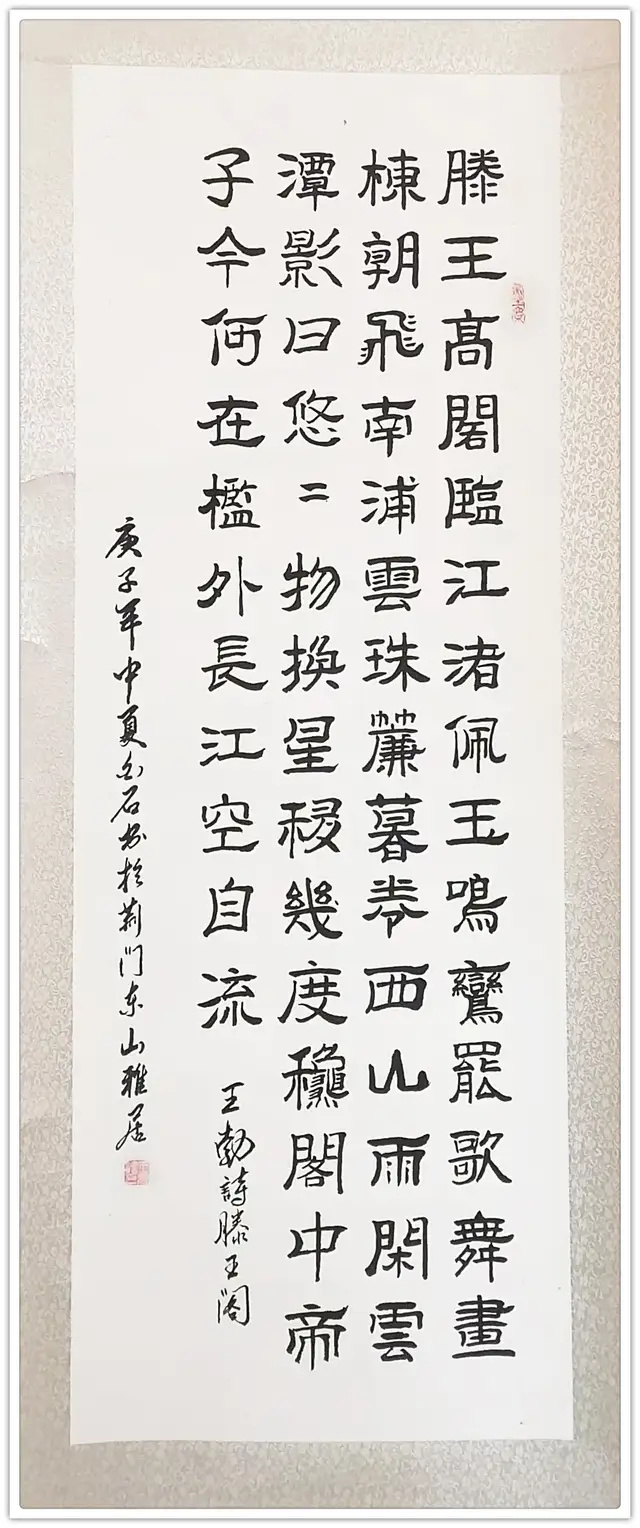 滕王高閣臨江渚佩玉鳴鸞罷歌舞畫
棟朝飛南浦雲珠簾暮卷西山雨閑雲
潭影日悠二物換星移幾度龝閣中帝
子今何在檻外長江空自流
王勃詩滕王阁
庚子年中夏白石书於荆门东山雅居